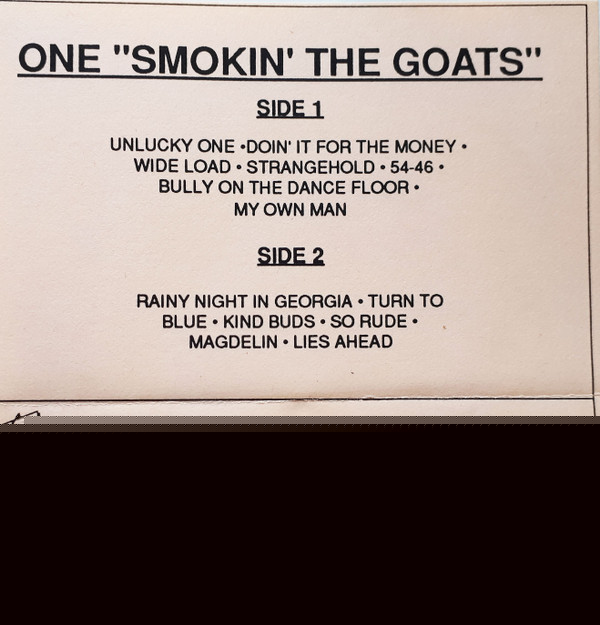 ONE "SMOKIN' THE GOATS"
SIDE 1
UNLUCKY ONE •DOIN' IT FOR THE MONEY •
WIDE LOAD • STRANGEHOLD • 54-46 •
BULLY ON THE DANCE FLOOR •
MY OWN MAN
SIDE 2
RAINY NIGHT IN GEORGIA • TURN TO
BLUE • KIND BUDS • SO RUDE •
MAGDELIN • LIES AHEAD